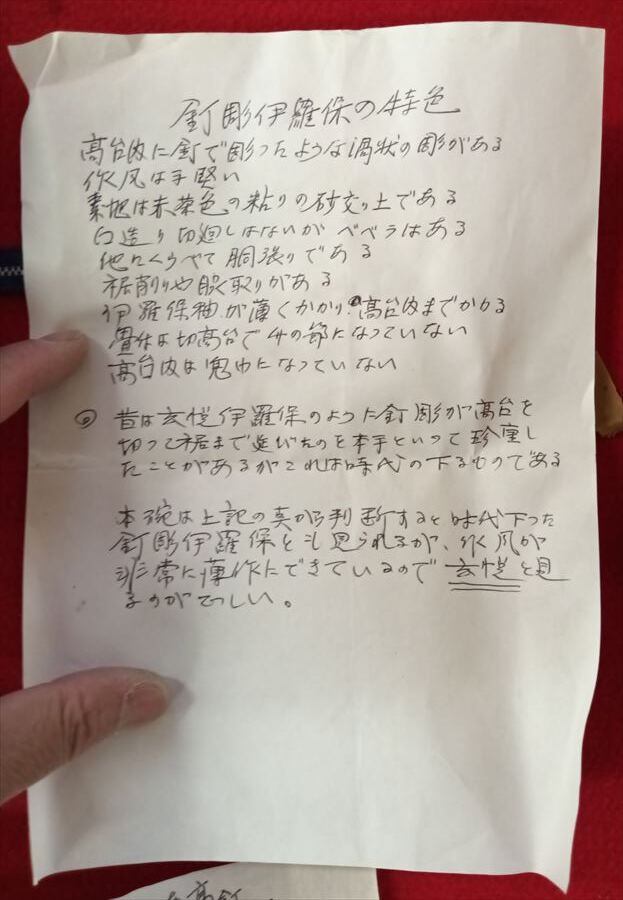 釘彫伊羅保の特色
高台内に釘で彫ったような渦状の彫がある
作風は手堅い
素地は赤茶色の粘りの砂交り土である
口造り切廻しはないがベベラはある
他にくらべて胴張りである
裾削りや脇取りがある
伊羅保釉が薄くかかり高台内までかかる
畳付は切高台で竹の節になっていない
高台内は兜巾になっていない
昔は玄悦伊羅保のように釘彫が高台を
切って裾まで延びたのを本手といって珍重し
たことがあるがこれは時代の下るものである
本碗は上記の点から判断すると時代下った
釘彫伊羅保とも見られるが、作風が
非常に薄作にできているので玄悦と見
るのが正しい。